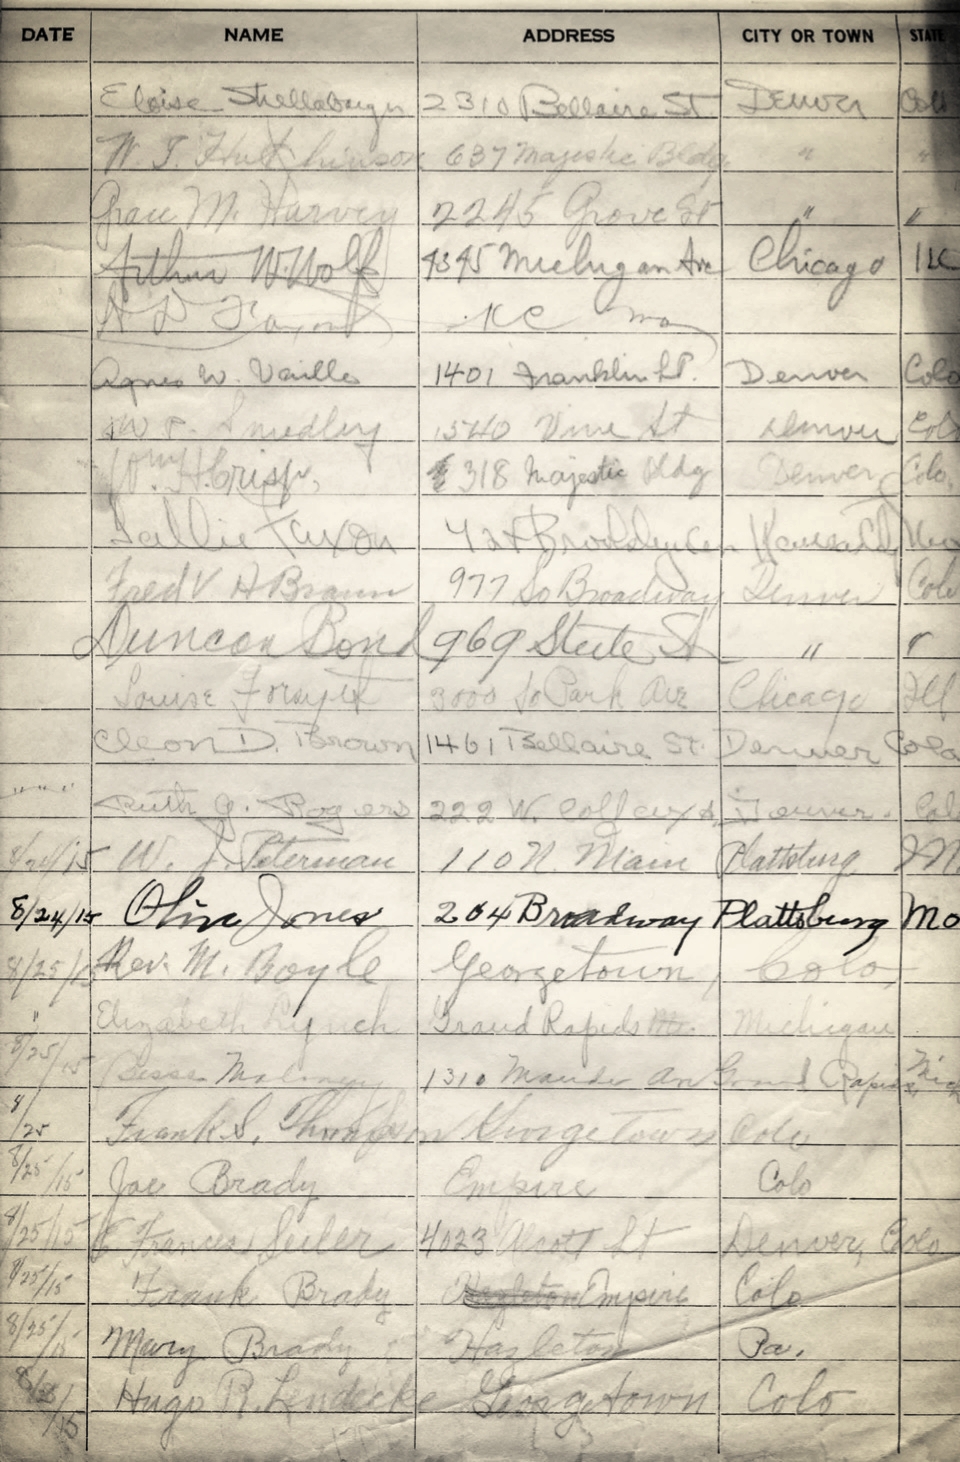 DATE NAME ADDRESS CITY OR TOWN STATE
Eloise Shellabarger 2310 Bellaire St. Denver Colo
W. T. Hutchinson 637 Majestic Bldg. " "
Grace M. Harvey 2245 Grove St " "
Arthur W. Wolf 4345 Michigan Ave Chicago Ill
KC Mo
Agnes W. Vaille 1401 Franklin St. Denver Colo
Smedley 1540 Vine St Denver Colo
Wm. H. Crisp, 318 Majestic Bldg Denver, Colo.
Sallie
Fred V H Braun 977 So Broadway Denver Colo
Duncan Bond 969 State St " "
Louise Forsyth 3000 So Park Ave Chicago Ill
Cleon D. Brown 1461 Bellaire St. Denver Colo
" " " Ruth G. Rogers 222 W. Colfax Denver. Col
8/24/15 W. J. Peterman 110 N. Main Plattsburg M
8/24/15 Olive Jones 204 Broadway Plattsburg Mo
8/25/15 Rev. M. Boyle Georgetown, Colo,
" Elizabeth Lynch Grand Rapids Michigan
8/25/15 Bessie 1310 Grand Rapids, Mich
8/25 Frank S. Thompson Georgetown Colo
8/25/15 Joe Brady Empire Colo
8/25/15 Frances Seiler 4023 Alcott St Denver, Colo
8/25/15 Frank Brady Empire Colo
8/25/15 Mary Brady Hazleton Pa.
Hugo R. Lendecke Georgetown Colo